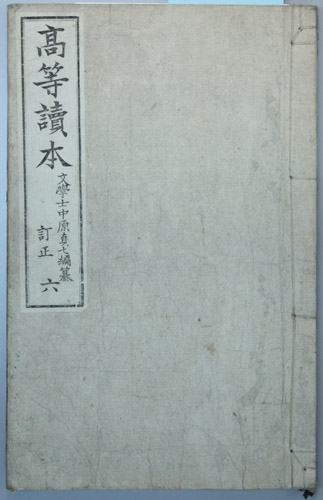 高等讀本
文學士中原貞七編纂
訂正 六